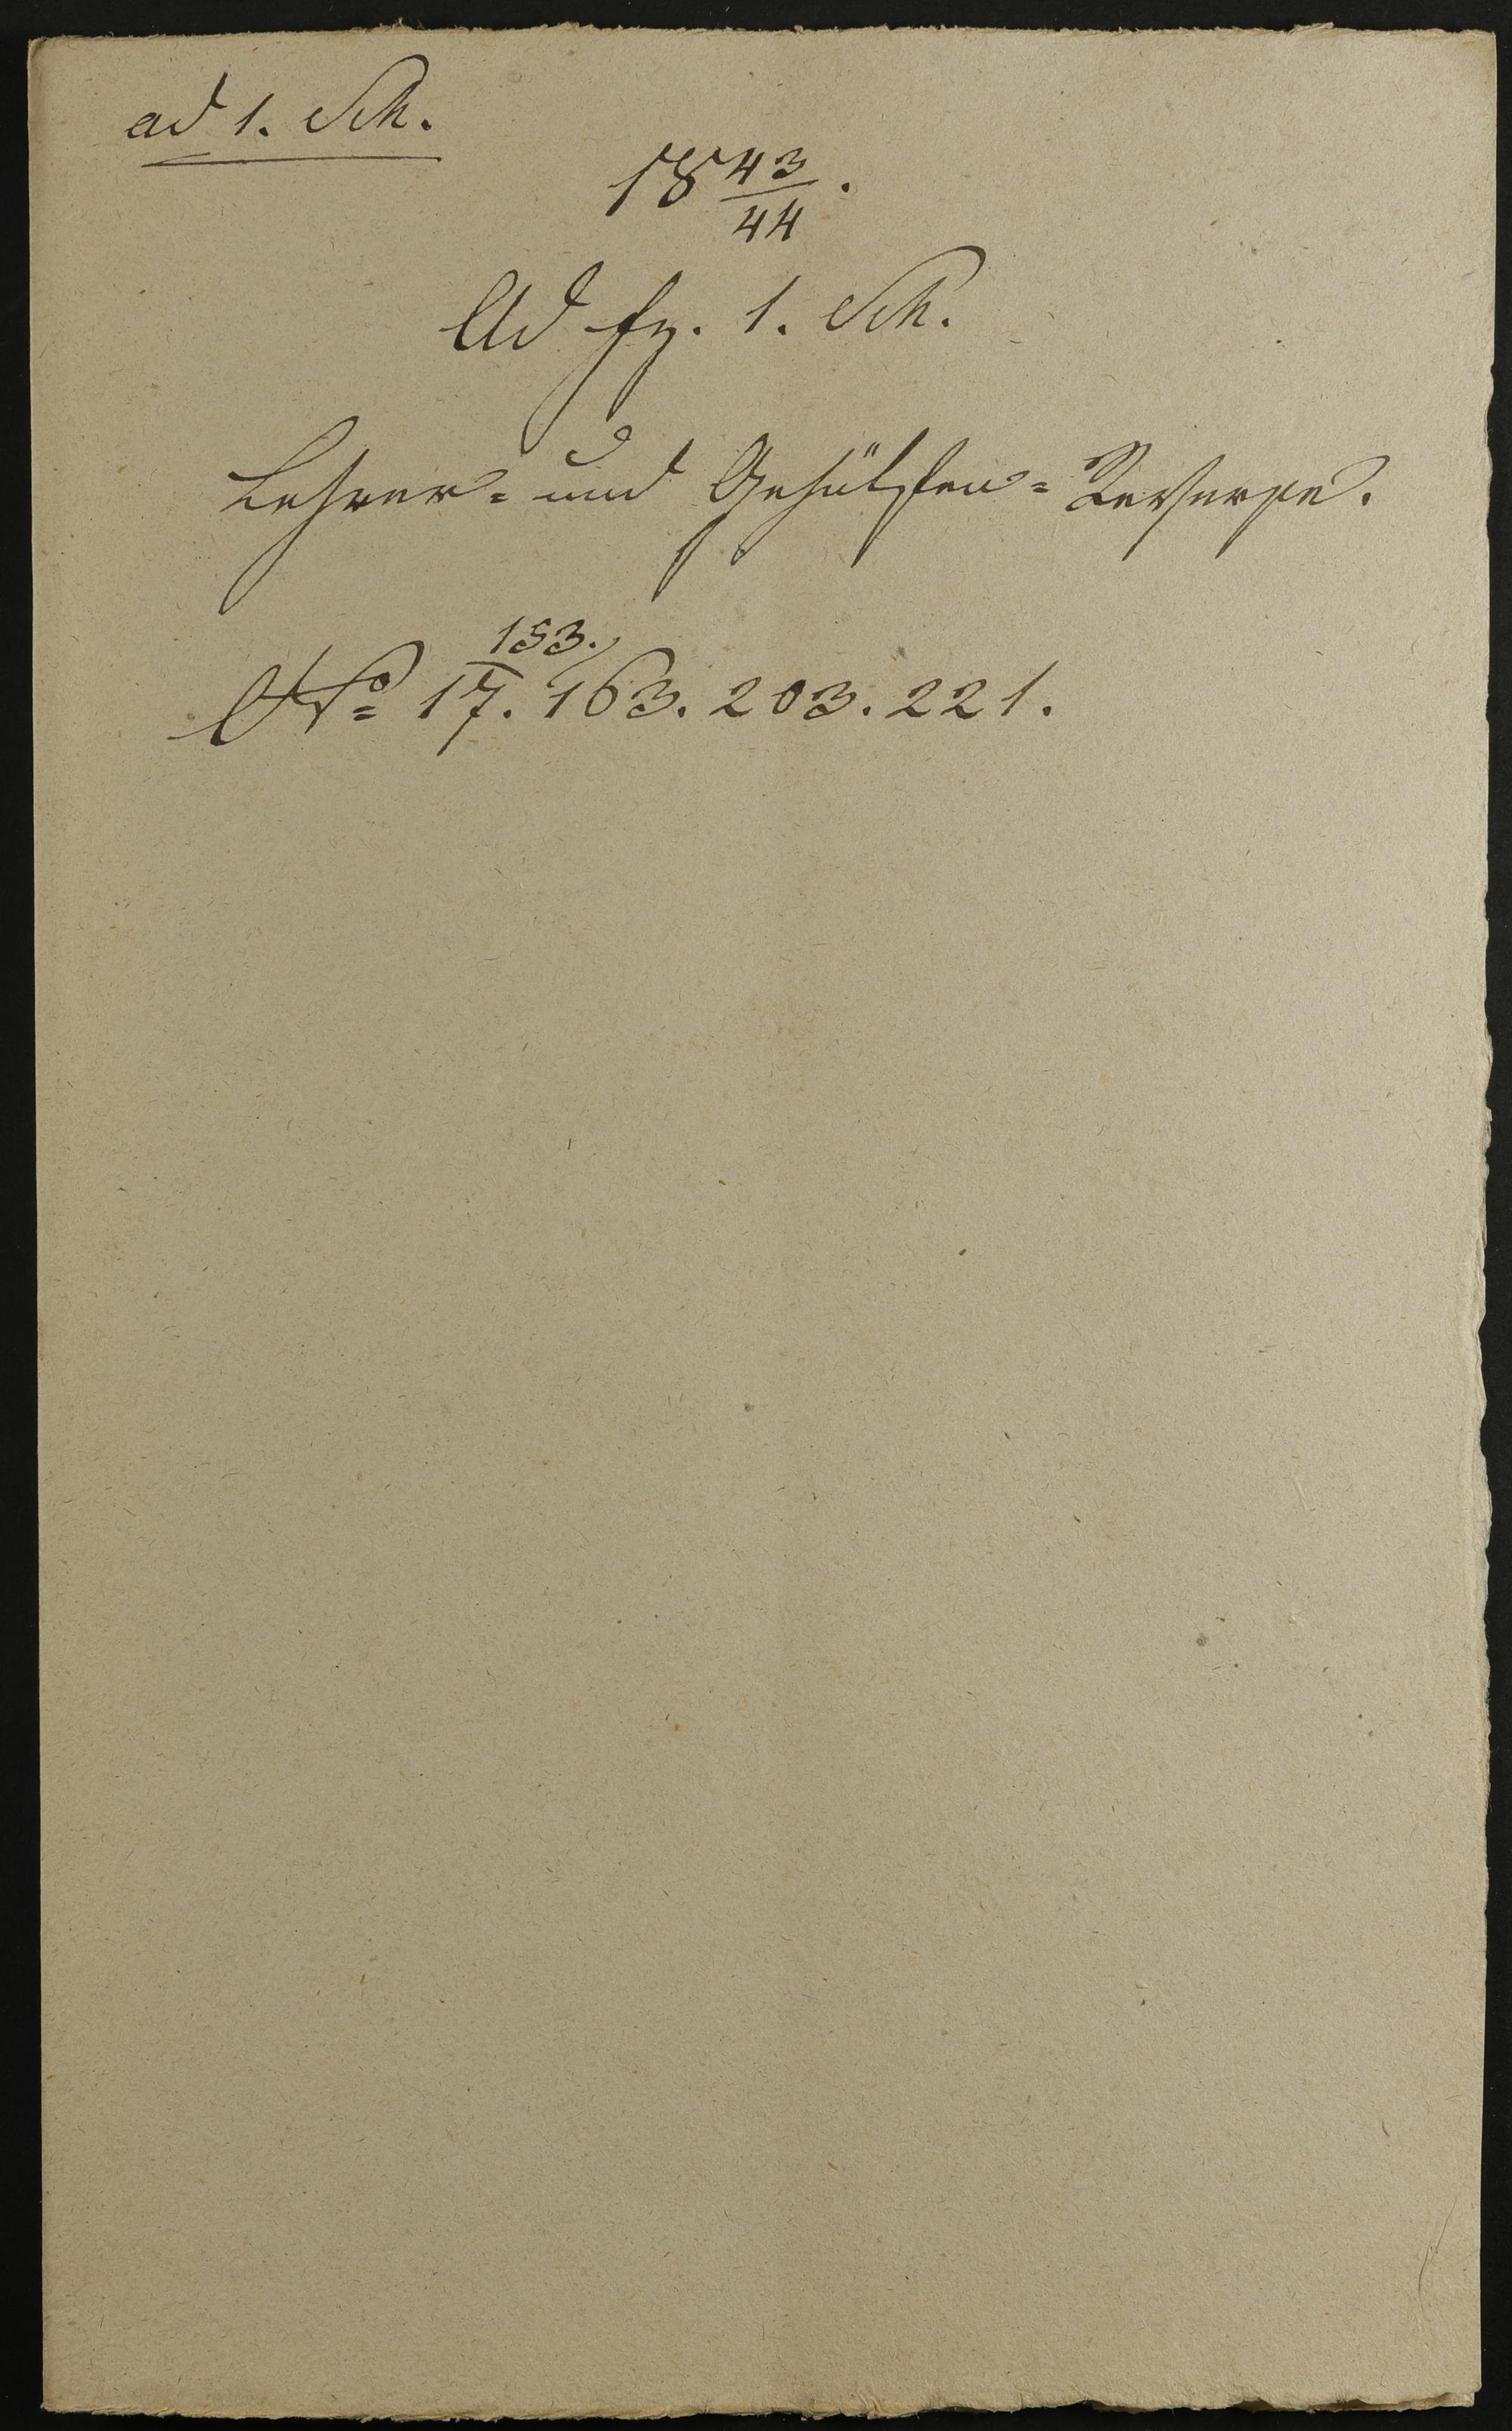 ad 1. Sch.
18 43/44.
Ad fz. 1. Sch.
Lehrer- und Gehülfen- Reverse.
153.
No 17. 163. 203. 221.